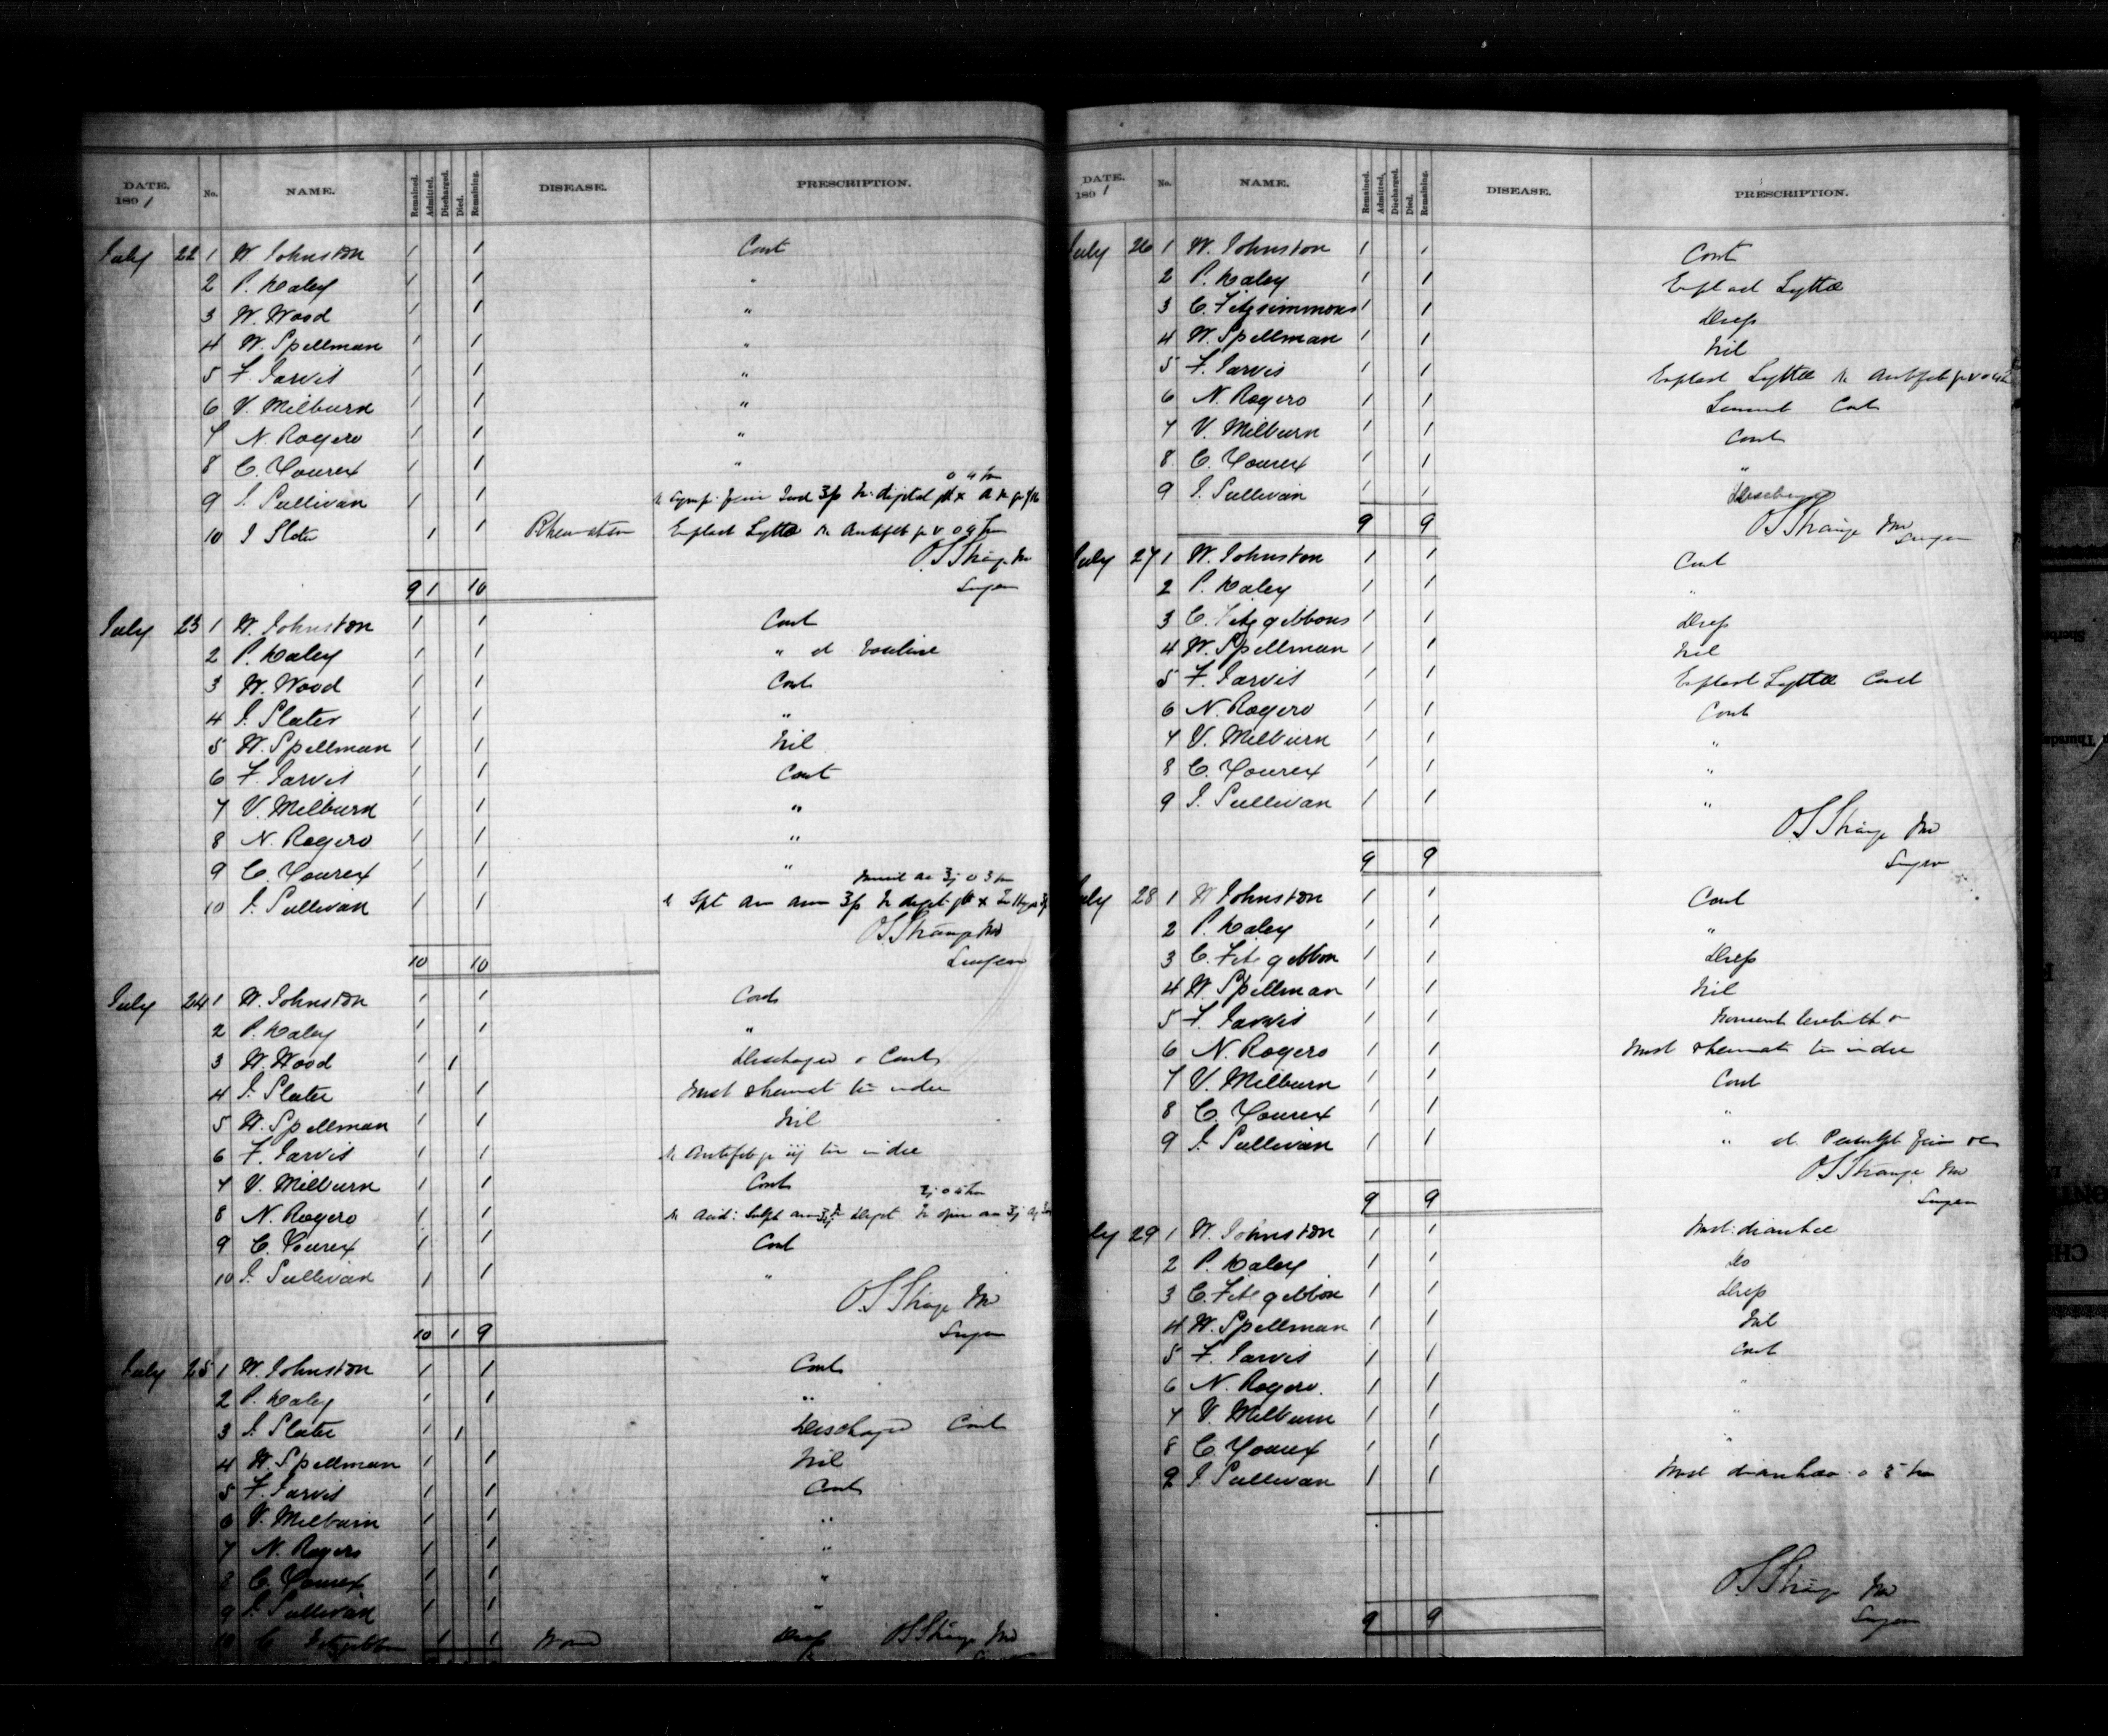 DATE. 1891 No. NAME. Remained. Admitted. Discharged. Died. Remaining. DISEASE. PRESCRIPTION.
July 22 1 W Johnston 1 1 Cont
2 P. Haley 1 1 "
3 W. Wood 1 1 "
4 W. Spellman 1 1 "
5 F. Jarvis 1 1 "
6 V. Milburn 1 1 "
7 N. Rogers 1 1 "
8 C. Yourex 1 1 "
9 J. Sullivan 1 1
10 J Slater 1 1 Rheumatism Emplast Lyttae
O S Strange MD
9 1 10 Surgeon
July 23 1 W. Johnston 1 1 Cont
2 P. Haley 1 1 " et Vaseline
3 W. Wood 1 1 Cont
4 J. Slater 1 1 "
5 W. Spellman 1 1 Nil
6 F. Jarvis 1 1 Cont
7 V. Milburn 1 1 "
8 N. Rogers 1 1 "
9 C. Yourex 1 1 "
10 J. Sullivan 1 1
O S Strange MD
10 10 Surgeon
July 24 1 W. Johnston 1 1 Cont
2 P. Haley 1 1 "
3 W. Wood 1 1 Discharged Cont
4 J. Slater 1 1 Mist Rheumat tir in die
5 W. Spellman 1 1 Nil
6 F. Jarvis 1 1 Antifeb gr iij tir in die
7 V. Milburn 1 1 Cont
8 N. Rogers 1 1
9 C. Yourex 1 1 Cont
10 J. Sullivan 1 1 "
O S Strange MD
10 1 9 Surgeon
July 25 1 W. Johnston 1 1 Cont
2 P. Haley 1 1 "
3 J. Slater 1 1 Discharged Cont
4 W. Spellman 1 1 Nil
5 F. Jarvis 1 1 Cont
6 V. Milburn 1 1 "
7 N. Rogers 1 1 "
8 C. Yourex 1 1 "
9 J. Sullivan 1 1 "
10 C Fitzgibbon 1 1 Wound Dress O S Strange MD
DATE. 1891 No. NAME. Remained. Admitted. Discharged. Died. Remaining. DISEASE. PRESCRIPTION.
July 26 1 W. Johnston 1 1 Cont
2 P. Haley 1 1 Emplast Lyttae
3 C. Fitzsimmons 1 1 Dress
4 W. Spellman 1 1 Nil
5 F. Jarvis 1 1 Emplast Lyttae
6 N. Rogers 1 1 Liniment Cont
7 V. Milburn 1 1 Cont
8 C. Yourex 1 1 "
9 J. Sullivan 1 1
9 9 O S Strange MD
Surgeon
July 27 1 W. Johnston 1 1 Cont
2 P. Haley 1 1 "
3 C. Fitzgibbons 1 1 Dress
4 W. Spellman 1 1 Nil
5 F. Jarvis 1 1 Emplast Lyttae Cont
6 N. Rogers 1 1 Cont
7 V. Milburn 1 1 "
8 C. Yourex 1 1 "
9 J. Sullivan 1 1 "
O S Strange MD
9 9 Surgeon
July 28 1 W Johnston 1 1 Cont
2 P. Haley 1 1 "
3 C. Fitzgibbon 1 1 Dress
4 W. Spellman 1 1 Nil
5 F. Jarvis 1 1
6 N. Rogers 1 1 Mist Rheumat tir in die
7 V. Milburn 1 1 Cont
8 C. Yourex 1 1 "
9 J. Sullivan 1 1 " et
O S Strange MD
9 9 Surgeon
July 29 1 W. Johnston 1 1 Mist. diarrhee
2 P. Haley 1 1 Do
3 C. Fitzgibbon 1 1 Dress
4 W. Spellman 1 1 Nil
5 F. Jarvis 1 1 Cont
6 N. Rogers. 1 1 "
7 V. Milburn 1 1 "
8 C. Yourex 1 1 "
9 J. Sullivan 1 1 Mist diarrhoea
O S Strange MD
9 9 Surgeon